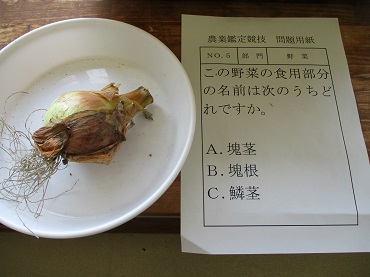 農業鑑定競技 問題用紙
NO.5 部門 野菜
この野菜の食用部分
の名前は次のうちど
れですか。
A.塊茎
B.塊根
C.鱗茎